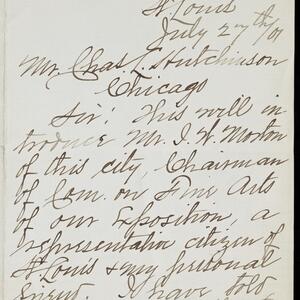 St Louis
July 27th/01
Mr. Chas. L. Hutchinson
Chicago
Sir: This will in
troduce Mr. I. W. Morton
of this city, Chairman
of Com. on Fine Arts
of our Exposition, a
representative citizen of
St Louis & my personal
friend. I have told